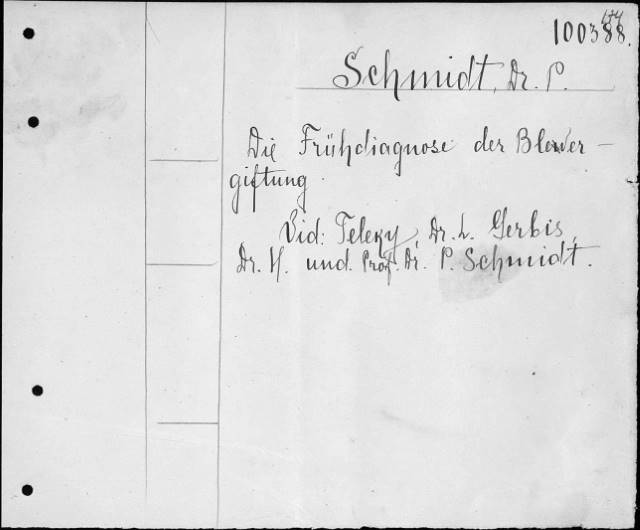 100388.
Schmidt, Dr. P.
Die Frühdiagnose der Bleiver-
giftung
Vid: Teleky, Dr. L. Gerbis,
Dr. H. und Prof. Dr. P. Schmidt.